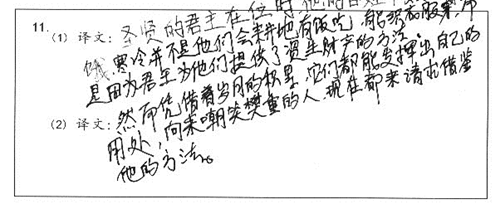 11.
(1) 译文：圣贤的君主在位时他的百姓不
饿寒冷并不是他们会耕地有饭吃，能织衣服穿，而
是因为君主为他们提供了资生财产的方法
(2) 译文：然而凭借着岁月的积累，它们都能发挥出自己的
用处，向来嘲笑樊重的人现在都来请求借鉴
他的方法。